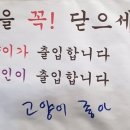 을 꼭! 닫으세
이가 출입합니다
인이 출입합니다
고양이 좋아